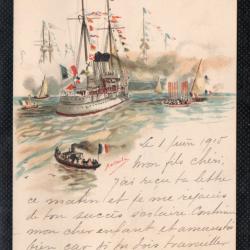 Le 1 Juin 1915
Mon fils chéri,
J'ai reçu ta lettre
ce matin et je me réjouis
de ton succès scolaire. Continue
mon cher enfant et
bien car si tu dois travailler